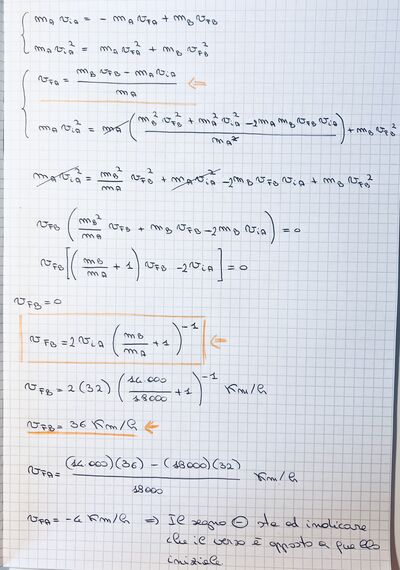 m_A v_iA = - m_A v_FA + m_B v_FB
m_A v_iA^2 = m_A v_FA^2 + m_B v_FB^2
v_FA = (m_B v_FB - m_A v_iA) / m_A ⇐
m_A v_iA^2 = m_A ( (m_B^2 v_FB^2 + m_A^2 v_iA^2 - 2 m_A m_B v_FB v_iA) / m_A^2 ) + m_B v_FB^2
m_A v_iA^2 = m_B^2/m_A v_FB^2 + m_A v_iA^2 - 2 m_B v_FB v_iA + m_B v_FB^2
v_FB ( m_B^2/m_A v_FB + m_B v_FB - 2 m_B v_iA ) = 0
v_FB [ ( m_B/m_A + 1 ) v_FB - 2 v_iA ] = 0
v_FB = 0
v_FB = 2 v_iA ( m_B/m_A + 1 )^-1 ←
v_FB = 2 (32) ( 14 000/18000 + 1 )^-1 Km/h
v_FB = 36 Km/h ←
v_FA = ( (14 000)(36) - (18000)(32) ) / 18000 Km/h
v_FA = -4 Km/h ⇒ Il segno ⊖ sta ad indicare
che il verso è opposto a quello
iniziale